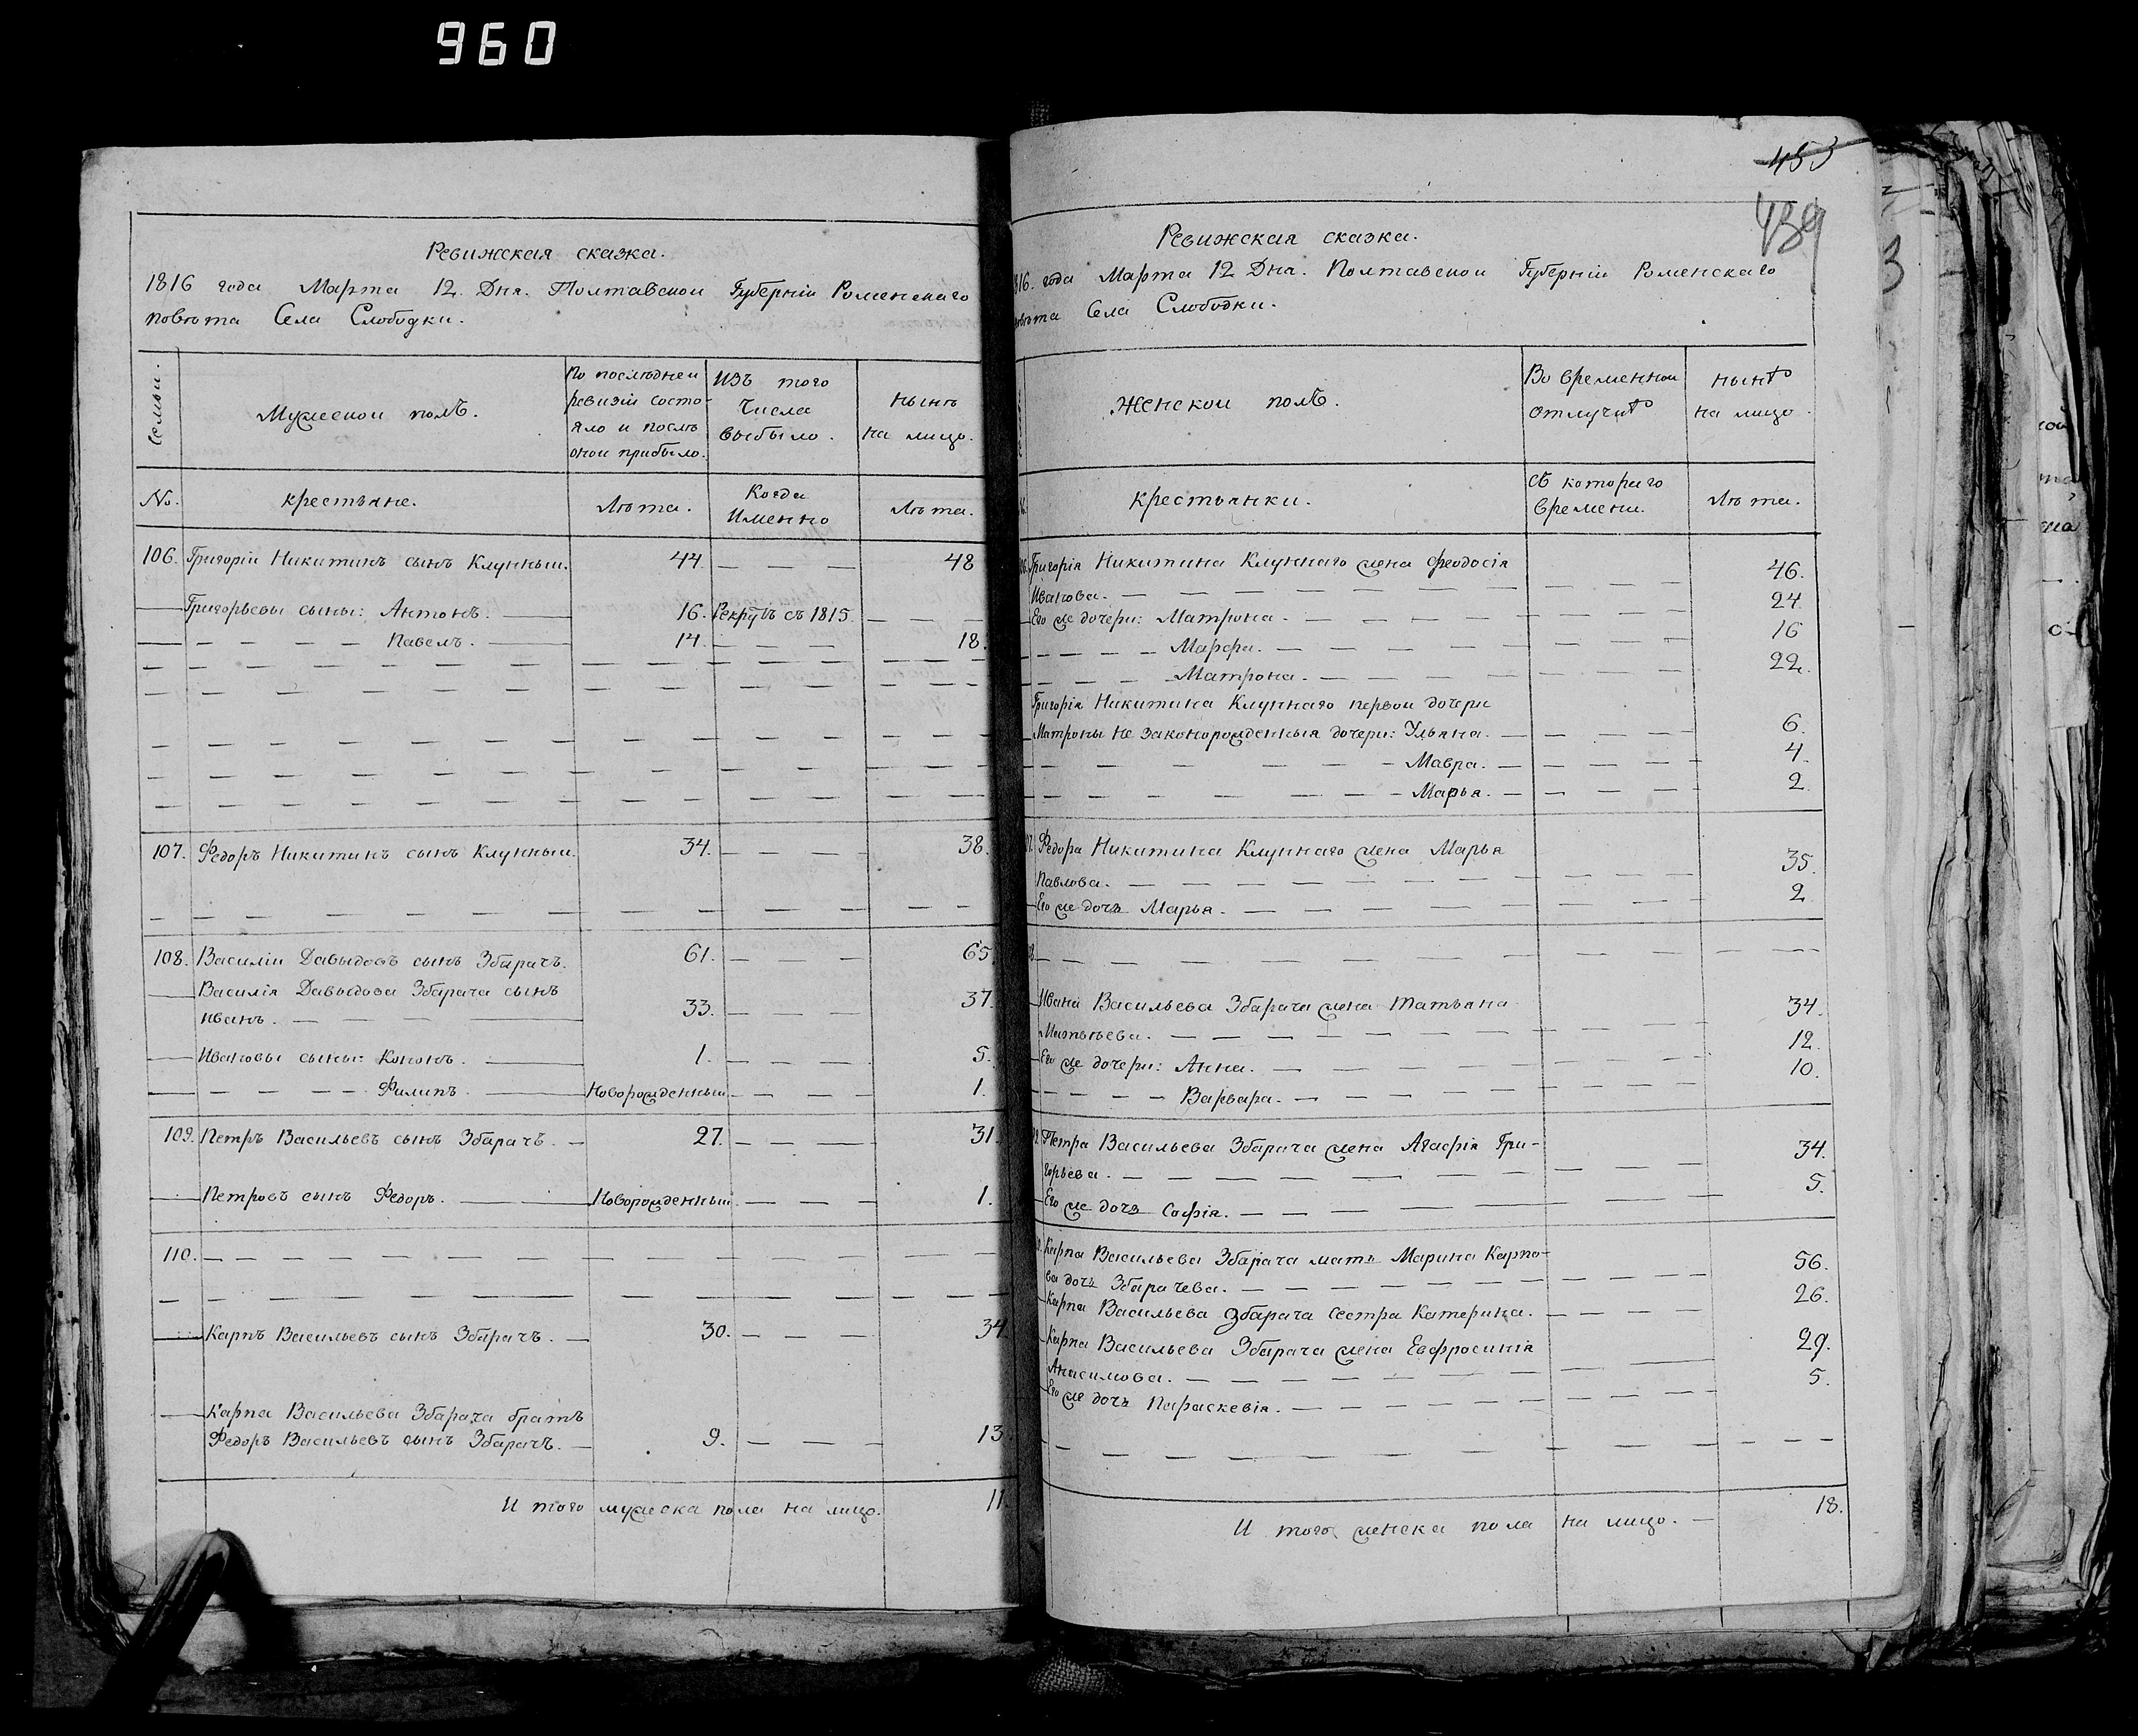 960
Ревижская сказка.
1816 года Марта 12. Дня. Полтавской Губерніи Роменскаго
повѣта Села Слободки.
Семьи.
Мужескои полъ.
По послѣднеи
ревизіи состо-
яло и послѣ
онои прибыло.
Изъ того
числа
выбыло.
нынѣ
на лицо.
No.
крестьяне.
Лѣта.
Когда
Именно
Лѣта.
106. Григоріи Никитинъ сынъ Клунныи. 44. — — — 48
Григорьевы сыны: Антонъ. 16. Рекрутъ съ 1815. — — —
— — — — Павелъ. 14. — — — 18.
107. Федоръ Никитинъ сынъ Клунныи. 34. — — — 38.
108. Василіи Давыдовъ сынъ Збарачъ. 61. — — — 65.
Василія Давыдова Збарача сынъ
Иванъ. — — — 33. — — — 37.
Ивановы сыны: Кононъ. 1. — — — 5.
— — — — Филипъ. Новорожденныи — — — 1.
109. Петръ Васильевъ сынъ Збарачъ. — 27. — — — 31.
Петровъ сынъ Федоръ. Новорожденныи. — — — 1.
110. — — — — — —
Карпъ Васильевъ сынъ Збарачъ. — 30. — — — 34.
Карпа Васильева Збарача братъ
Федоръ Васильевъ сынъ Збарачъ. — 9. — — — 13.
И того мужеска пола на лицо. 11.
453
439
Ревижская сказка.
816. года Марта 12 Дна. Полтавскои Губерніи Роменскаго
повѣта Села Слободки.
Женскои полъ.
Во временнои
отлучкѣ
нынѣ
на лицо.
крестьянки.
съ котораго
времени.
Лѣта.
Григорія Никитина Клуннаго жена Феодосія
Иванова. — — — 46.
Его же дочери: Матрона. — — — 24.
— — — — Марфа. — — — 16
— — — — Матрона. — — — 22.
Григорія Никитина Клуннаго первои дочери
Матроны не законорожденныя дочери: Ульяна. — — — 6.
— — — — Мавра. — — — 4.
— — — — Марья. — — — 2.
Федора Никитина Клуннаго жена Марья
Павлова. — — — 35.
Его же дочь Марья. — — — 2.
— — — — — —
Ивана Васильева Збарача жена Татьяна
Матвѣева. — — — 34.
Его же дочери: Анна. — — — 12.
— — — — Варвара. — — — 10.
Петра Васильева Збарача жена Агафія Гри-
горьева. — — — 34.
Его же дочь Софія. — — — 5.
Карпа Васильева Збарача мать Марина Карпо-
ва дочь Збарачева. — — — 56.
Карпа Васильева Збарача сестра Катерина. — — — 26.
Карпа Васильева Збарача жена Евфросинія
Анисимова. — — — 29.
Его же дочь Параскевія. — — — 5.
И того женска пола на лицо. — 18.